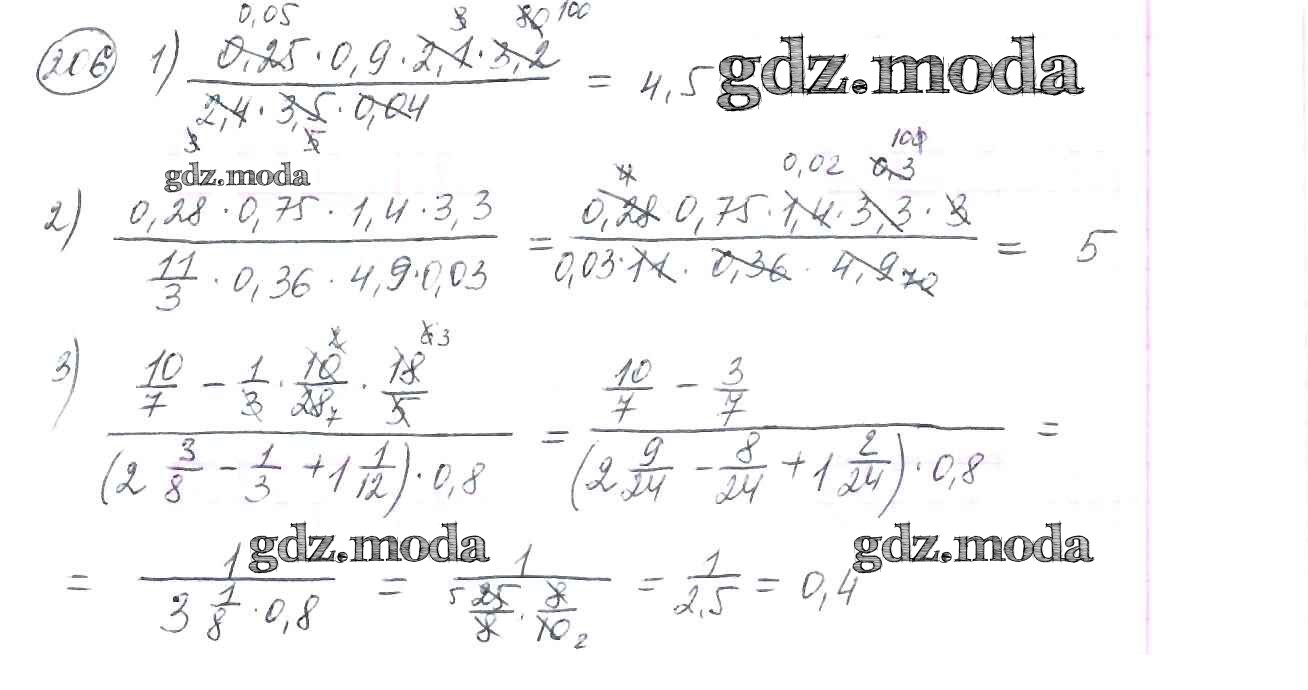 206 1) (0,25 · 0,9 · 2,1 · 3,2) / (2,4 · 3,5 · 0,04) = 4,5
0,05 3 80 100
3 5
gdz.moda
gdz.moda
2) (0,28 · 0,75 · 1,4 · 3,3) / (11/3 · 0,36 · 4,9 · 0,03) = (0,28 · 0,75 · 1,4 · 3,3 · 3) / (0,03 · 11 · 0,36 · 4,9) = 5
4 0,02 0,3 100
70
3) (10/7 − 1/3 · 10/28 · 18/5) / ((2 3/8 − 1/3 + 1 1/12) · 0,8) = (10/7 − 3/7) / ((2 9/24 − 8/24 + 1 2/24) · 0,8) =
2 6 3
7
= 1 / (3 1/8 · 0,8) = 1 / (25/8 · 8/10) = 1/2,5 = 0,4
5 2
gdz.moda
gdz.moda